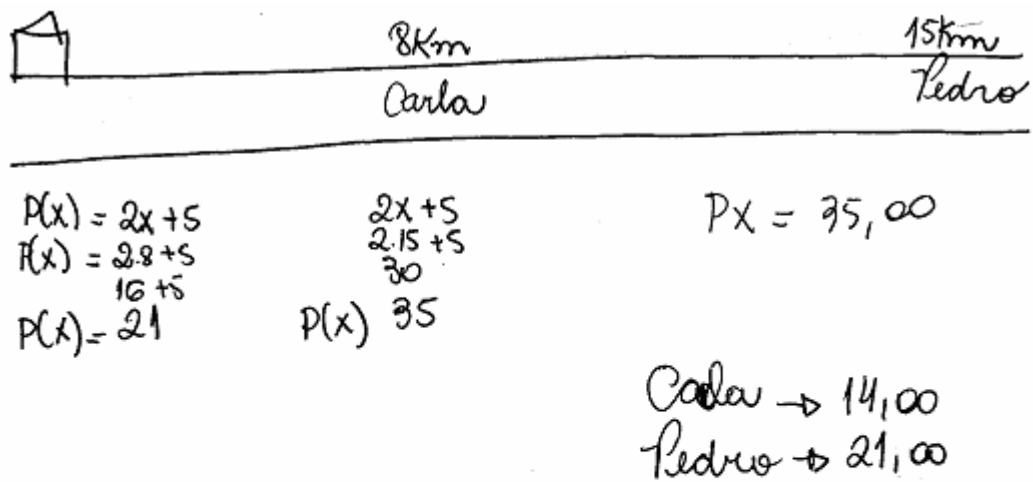 8Km 15Km
Carla Pedro
P(x) = 2x +5
P(x) = 2.8 +5
16 +5
P(x) = 21
2x +5
2.15 +5
30
P(x) 35
Px = 35,00
Carla → 14,00
Pedro → 21,00